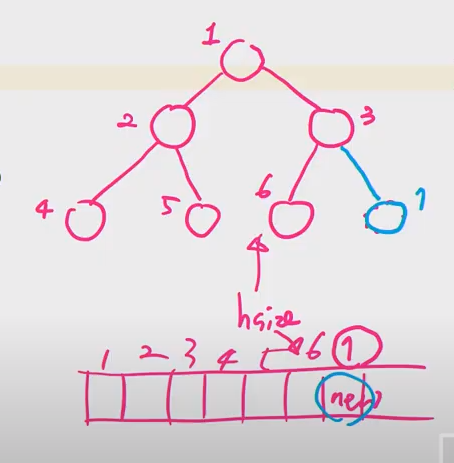 1
2 3
4 5 6 7
hsize
1 2 3 4 5 6 7
new